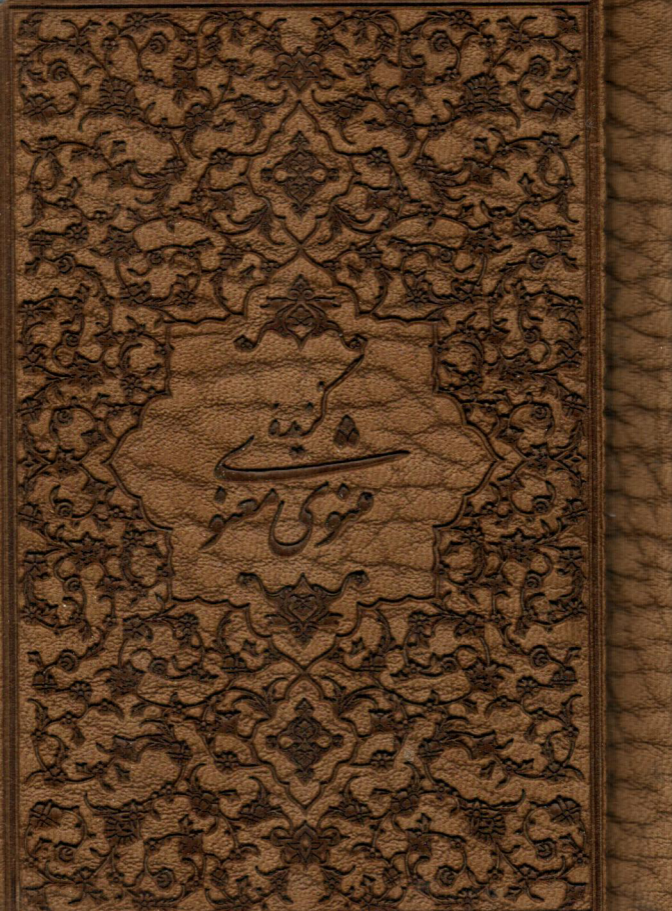 گزیده
مثنوی معنوی